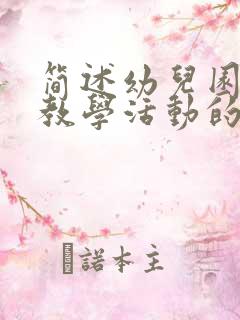 简述幼兒园
教學活動的
諾本主